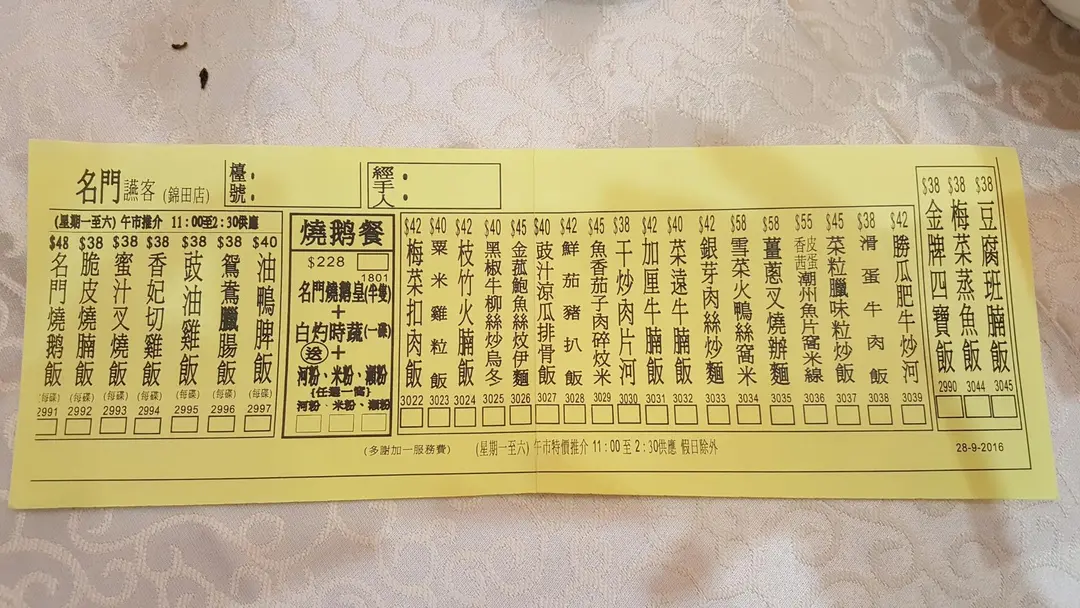 名門讌客 (錦田店)
檯號：
經手人：
(星期一至六) 午市推介 11:00至2:30供應
$48 名門燒鵝飯 (每碟) 2991
$38 脆皮燒腩飯 (每碟) 2992
$38 蜜汁叉燒飯 (每碟) 2993
$38 香妃切雞飯 (每碟) 2994
$38 豉油雞飯 (每碟) 2995
$38 鴛鴦臘腸飯 (每碟) 2996
$40 油鴨脾飯 (每碟) 2997
燒鵝餐
$228
1801
名門燒鵝皇(半隻)
+
白灼時蔬(一碟)
送+
河粉、米粉、瀨粉
{任選一窩}
河粉、米粉、瀨粉
$42 梅菜扣肉飯 3022
$40 粟米雞粒飯 3023
$42 枝竹火腩飯 3024
$40 黑椒牛柳絲炒烏冬 3025
$45 金菰鮑魚絲炆伊麵 3026
$40 豉汁涼瓜排骨飯 3027
$42 鮮茄豬扒飯 3028
$45 魚香茄子肉碎炆米 3029
$38 干炒肉片河 3030
$42 加厘牛腩飯 3031
$40 菜遠牛腩飯 3032
$42 銀芽肉絲炒麵 3033
$58 雪菜火鴨絲窩米 3034
$58 薑蔥叉燒辦麵 3035
$55 皮蛋香茜潮州魚片窩米線 3036
$45 菜粒臘味粒炒飯 3037
$38 滑蛋牛肉飯 3038
$42 勝瓜肥牛炒河 3039
$38 金牌四寶飯 2990
$38 梅菜蒸魚飯 3044
$38 豆腐班腩飯 3045
(多謝加一服務費)
(星期一至六) 午市特價推介 11:00至2:30供應 假日除外
28-9-2016